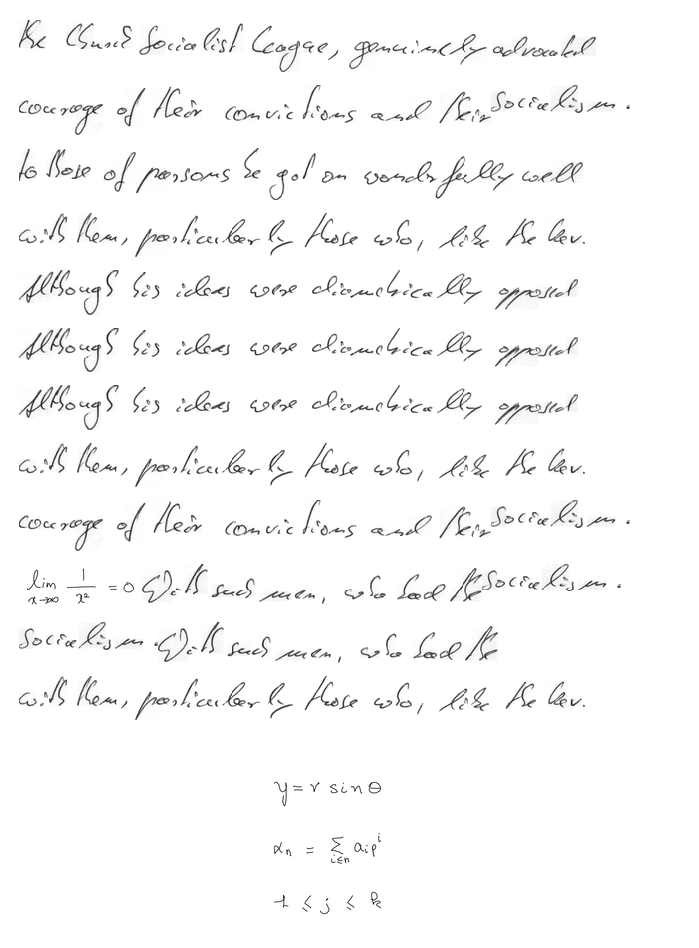 the Church Socialist League, genuinely advocated
courage of their convictions and their Socialism.
to those of persons he got on wonderfully well
with them, particularly those who, like the Rev.
Although his ideas were diametrically opposed
Although his ideas were diametrically opposed
Although his ideas were diametrically opposed
with them, particularly those who, like the Rev.
courage of their convictions and their Socialism.
lim x→∞ 1/x² = 0 With such men, who had the Socialism.
Socialism. With such men, who had the
with them, particularly those who, like the Rev.
y = r sin θ
αₙ = ∑ i∈n aᵢpⁱ
1 ≤ j ≤ k